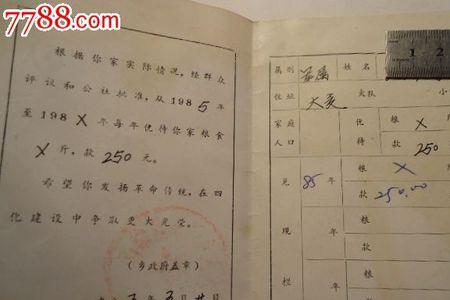 7788.com
根据你家实际情况,经群众
评议和公社批准,从1985年
至198X年每年优待你家粮食
X斤,款250元。
希望你发扬革命传统,在四
化建设中争取更大光荣。
(乡政府盖章)
年五月
属别 军属 姓名
住址 大麦 大队 小
家庭人口 优待 粮 X
款 250
兑现栏 85年 粮 X
款 250.00
年 粮
款
年 粮
款
1 2